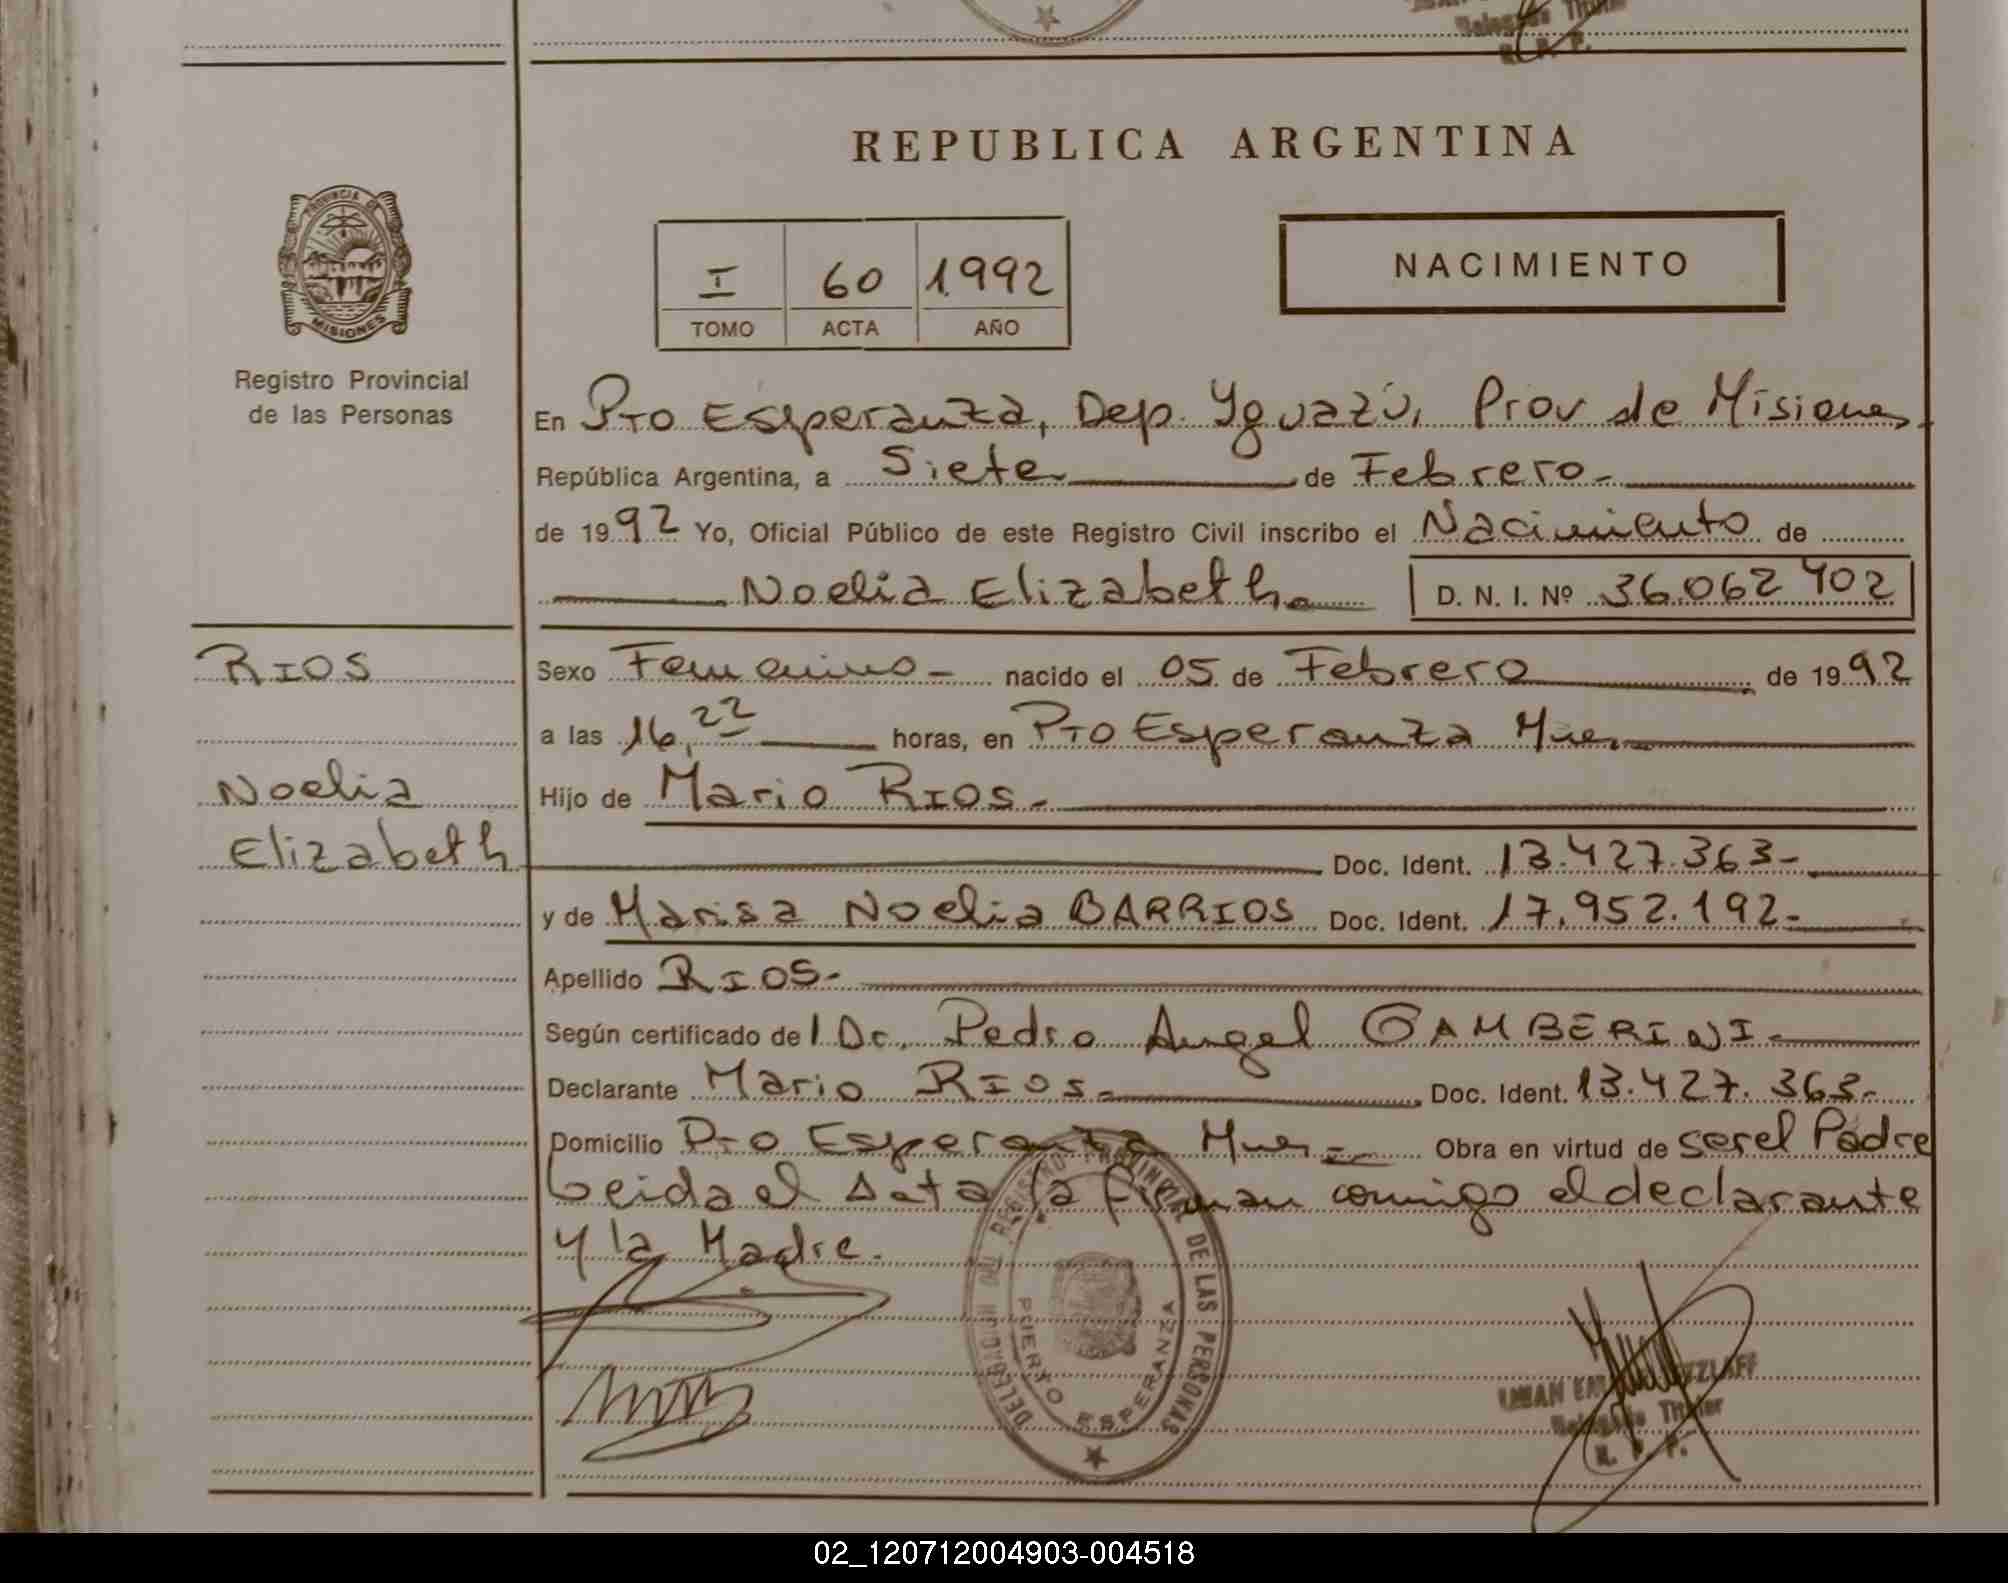 REPUBLICA ARGENTINA
PROVINCIA DE
MISIONES
Registro Provincial
de las Personas
I 60 1992
TOMO ACTA AÑO
NACIMIENTO
En Pto Esperanza, Dep. Yguazú, Prov de Misiones
República Argentina, a Siete de Febrero
de 1992 Yo, Oficial Público de este Registro Civil inscribo el Nacimiento de
Noelia Elizabeth D. N. I. Nº 36.062 402
RIOS
Noelia
Elizabeth
Sexo Femenino nacido el 05 de Febrero de 1992
a las 16,22 horas, en Pto Esperanza Mnes
Hijo de Mario RIOS
Doc. Ident. 13.427.363
y de Marisa Noelia BARRIOS Doc. Ident. 17.952.192
Apellido RIOS
Según certificado del Dr. Pedro Angel GAMBERINI
Declarante Mario RIOS Doc. Ident. 13.427.363
Domicilio Pto Esperanza Mnes Obra en virtud de ser el Padre
Leida el Acta la firman comigo el declarante
y la Madre.
DELEGACION DEL REGISTRO PROVINCIAL DE LAS PERSONAS
PUERTO ESPERANZA
Delegado Titular
R. P. P.
02_120712004903-004518